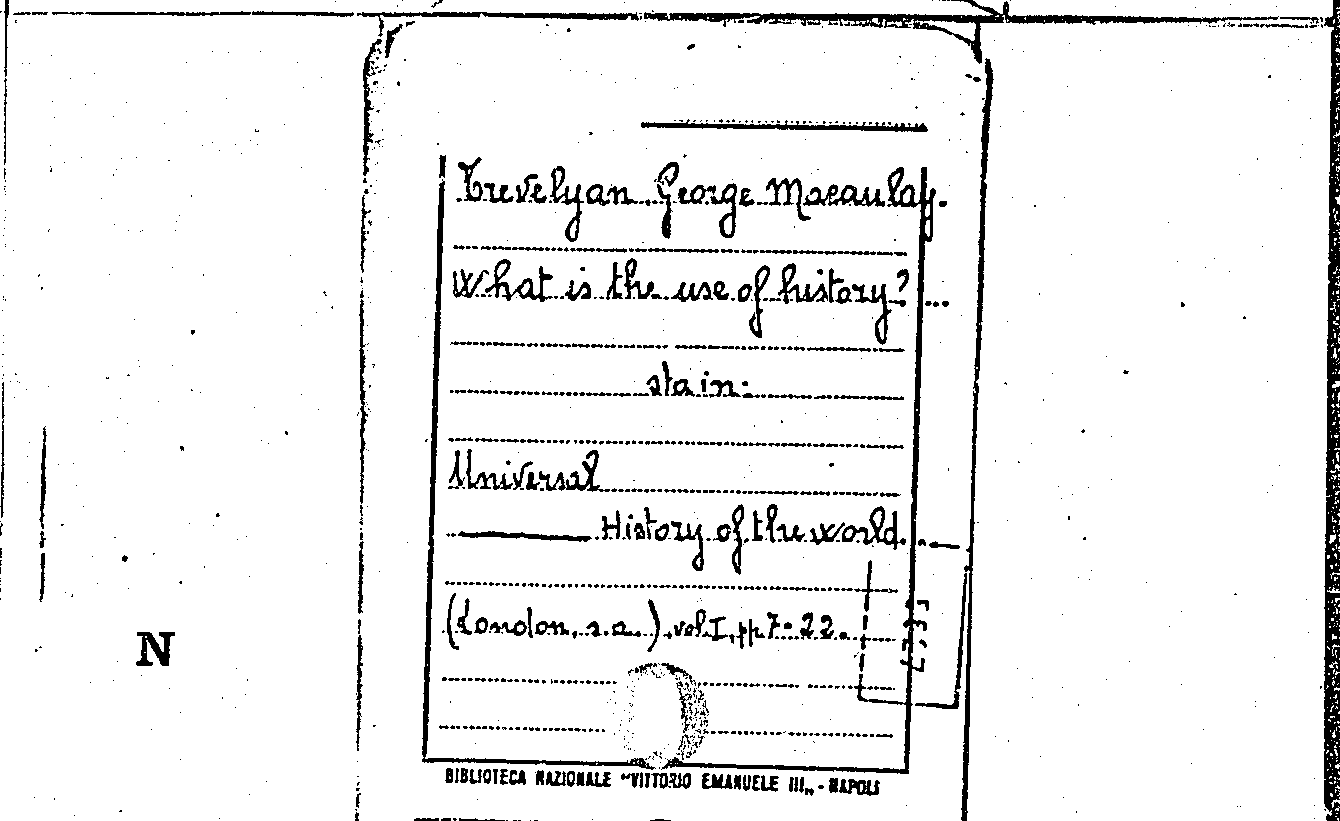 Trevelyan, George Macaulay.
What is the use of history? ...
sta in:
Universal
History of the world.
(London, s.a.), vol. I, pp 7-22.
N
BIBLIOTECA NAZIONALE "VITTORIO EMANUELE III„ - NAPOLI